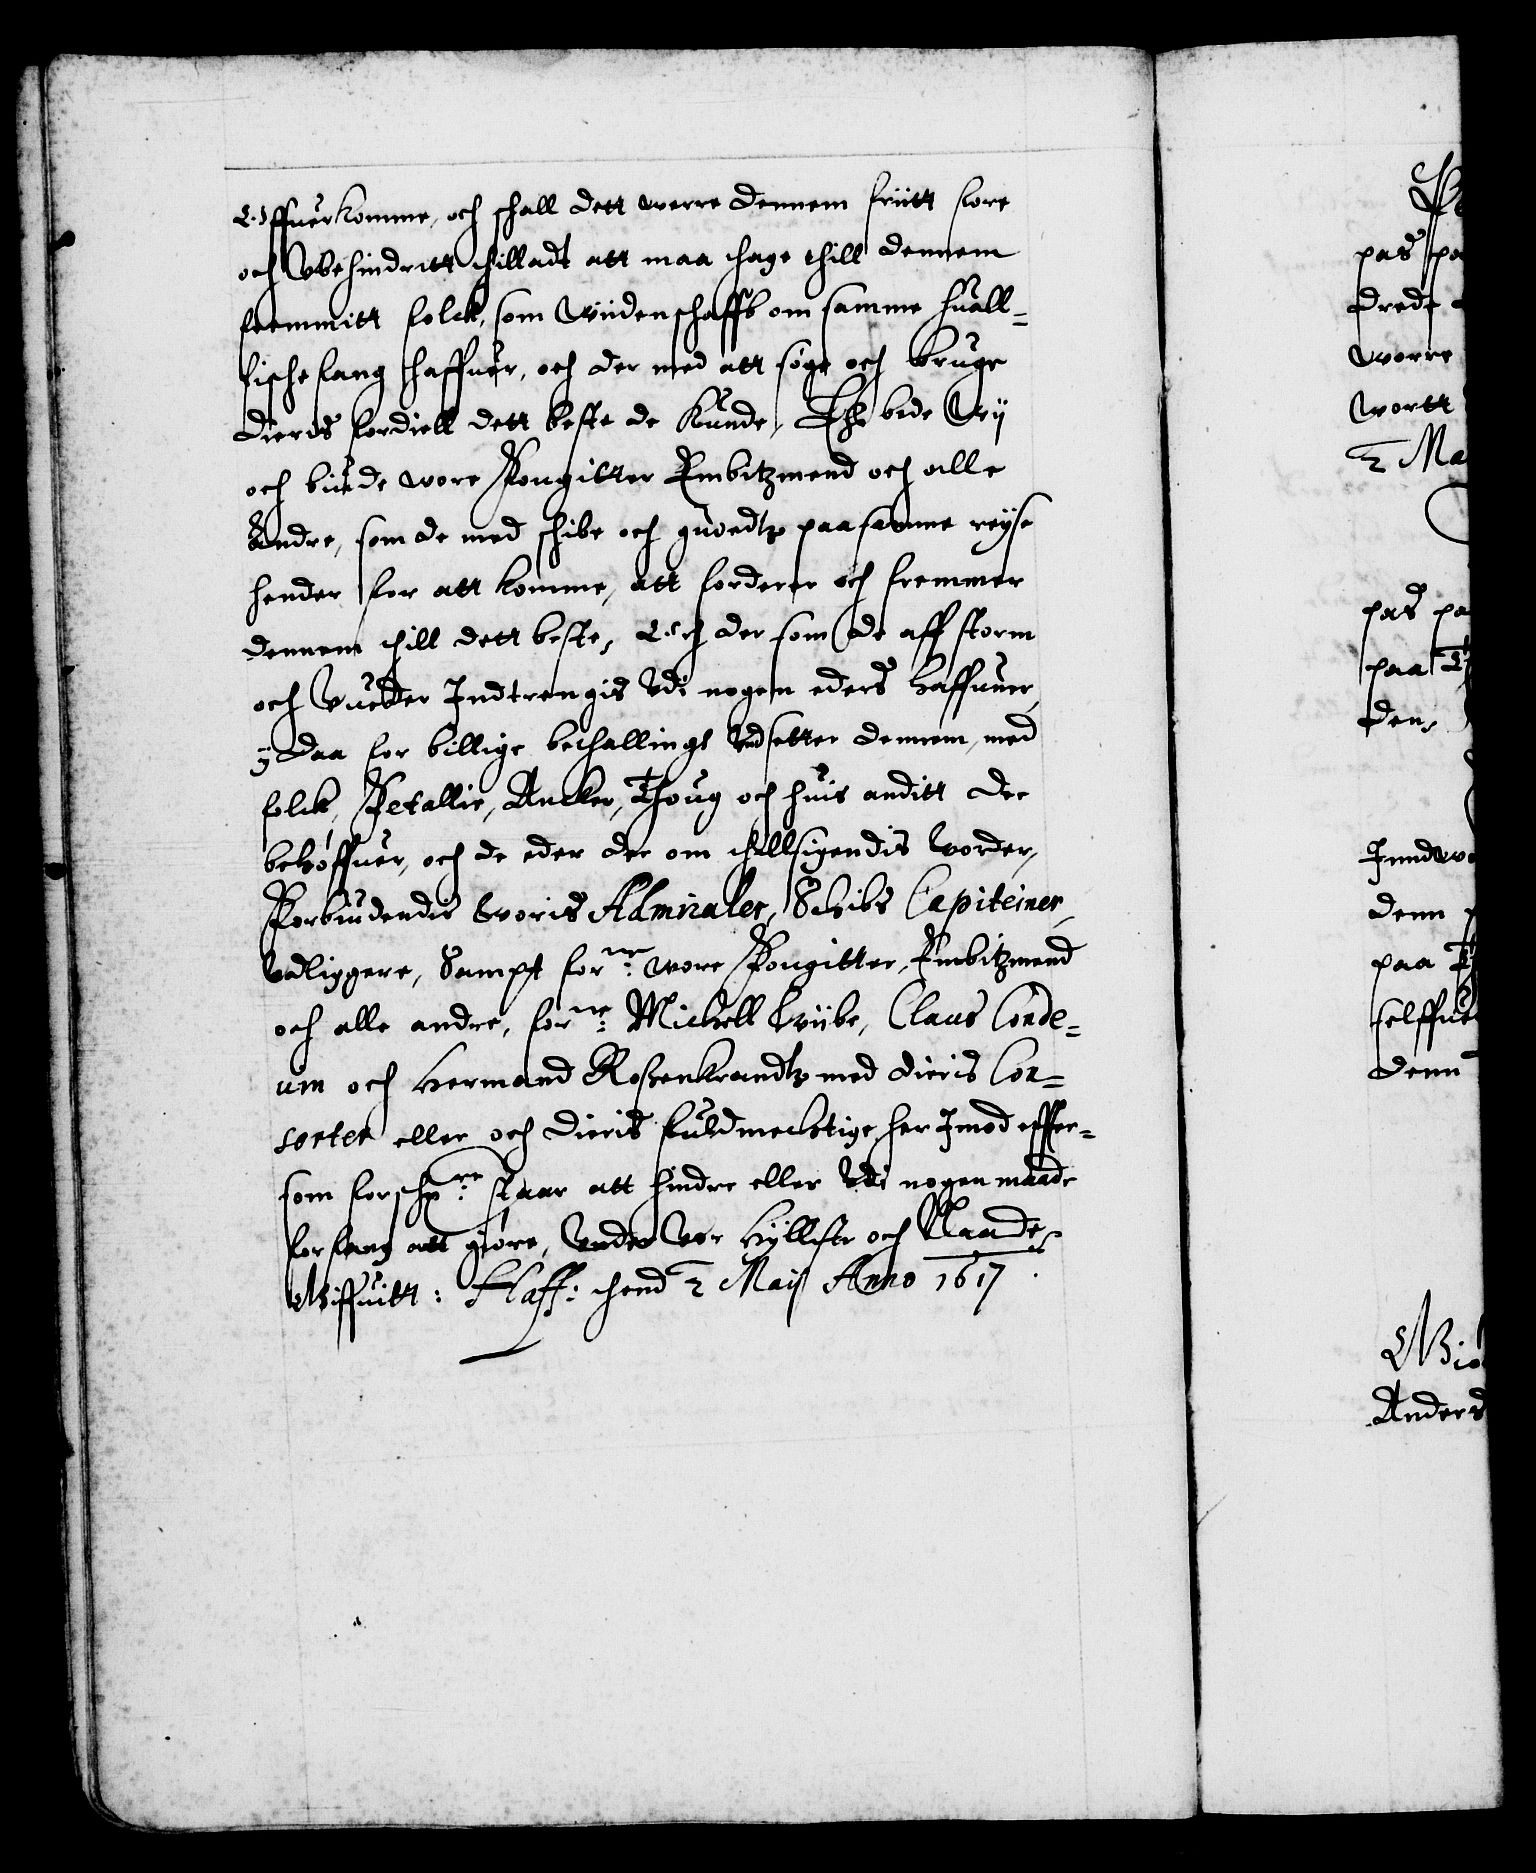 Offuerkomme, och schall dett werre dennem friitt fore
och Vbehindritt thilladt att maa thage thill dennem
fremmitt folck, som Widenschaffb om samme huall-
fischefang haffuer, och der med att søge och bruge
dieris fordiell dett beste de kunde, Thi bede Wij
och biude wore Fougitter Embitzmend och alle
Andre, som de med schibe och guodtz paa samme reyse
hender for att komme, att forderer och fremmer
dennem thill dett beste, Och der som de aff storm
och Vueder Indtrengis Vdi nogen eders haffuner,
ij daa for billige bethallingh Vndsetter dennem, med
folck, Fetallie, Ancker, Thoug och huis anditt der
behøffuer, och de eder der om thillsigendis Vorder,
Forbiudendis Woris Admiraler, Schibs Capiteiner,
Vdliggere, Sampt for^ne: wore Fougitter, Embitzmend
och alle andre, for^ne: Michell Wibe, Claus Conde-
uin och Hermand Rosenkrandtz med dieris Con-
sorter eller och dieris fuldmechtige her Imod effter-
som forsch^re: staar att hindre eller Vdi nogen maade
forfang att giøre, Vnder Vor Hyllest och Naade,
Giffuitt: Haff: thend 2 Maij Anno 1617.
pas pa
drede
worre
wortt
2 Ma
pas pa
paa
den,
denn
paa
selffue
denn
Anders